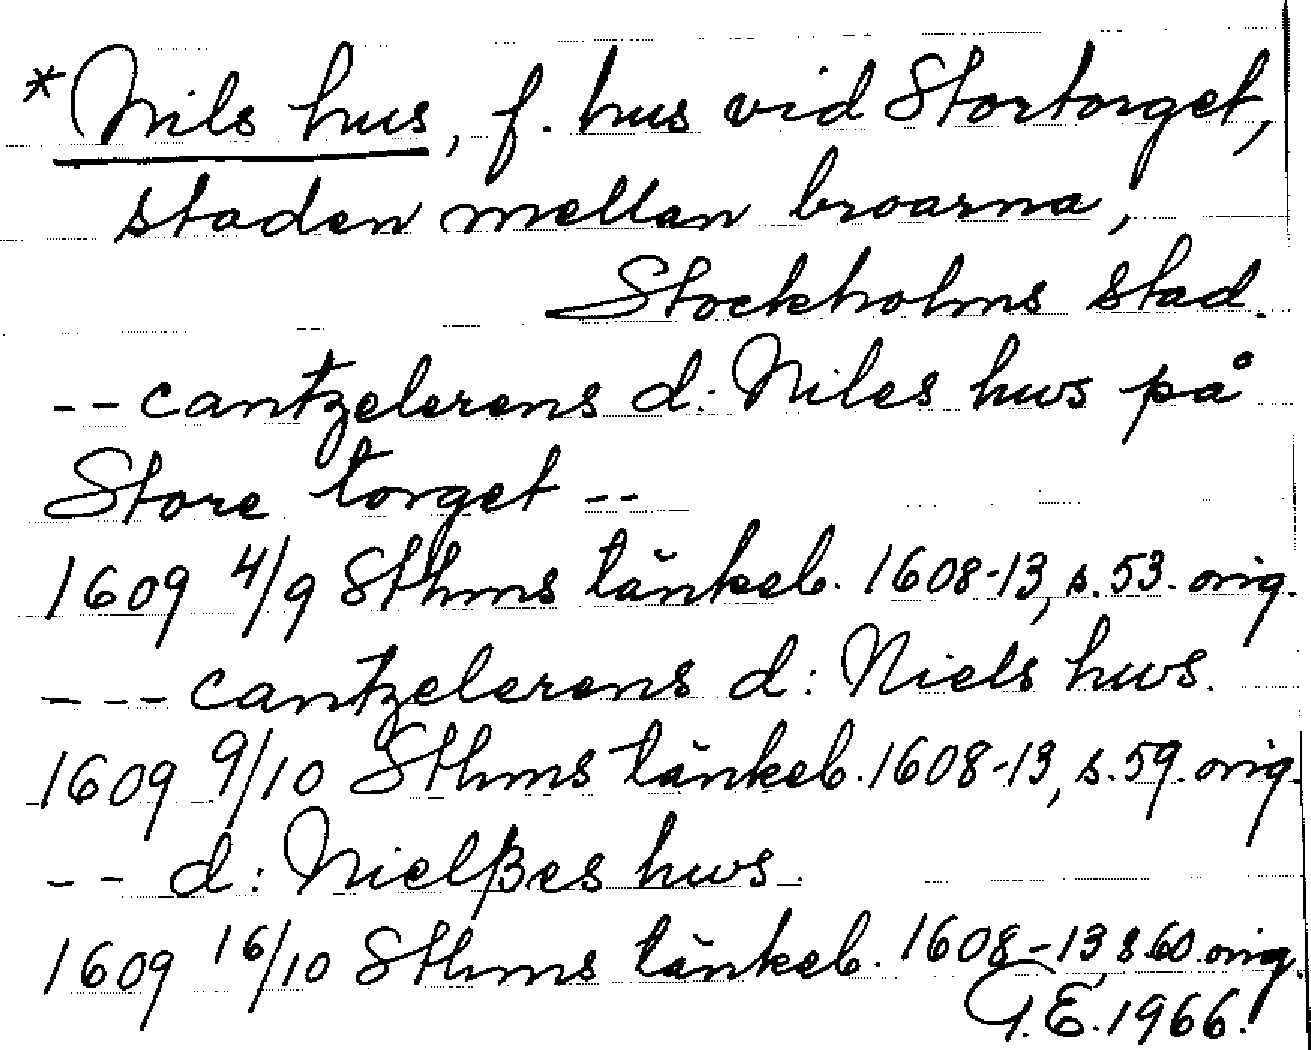 *Nils hus, f. hus vid Stortorget,
staden mellan broarna,
Stockholms stad.
-- cantzelerens d: Niles hws på
Store torget --
1609 4/9 Sthms tänkeb. 1608-13, s. 53. orig.
--- cantzelerens d: Niels hws.
1609 9/10 Sthms tänkeb. 1608-13, s. 59. orig.
-- d: Nielßes hws.
1609 16/10 Sthms tänkeb. 1608-13, s 60. orig.
G.E. 1966.